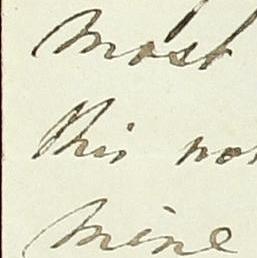 most
this no
mine